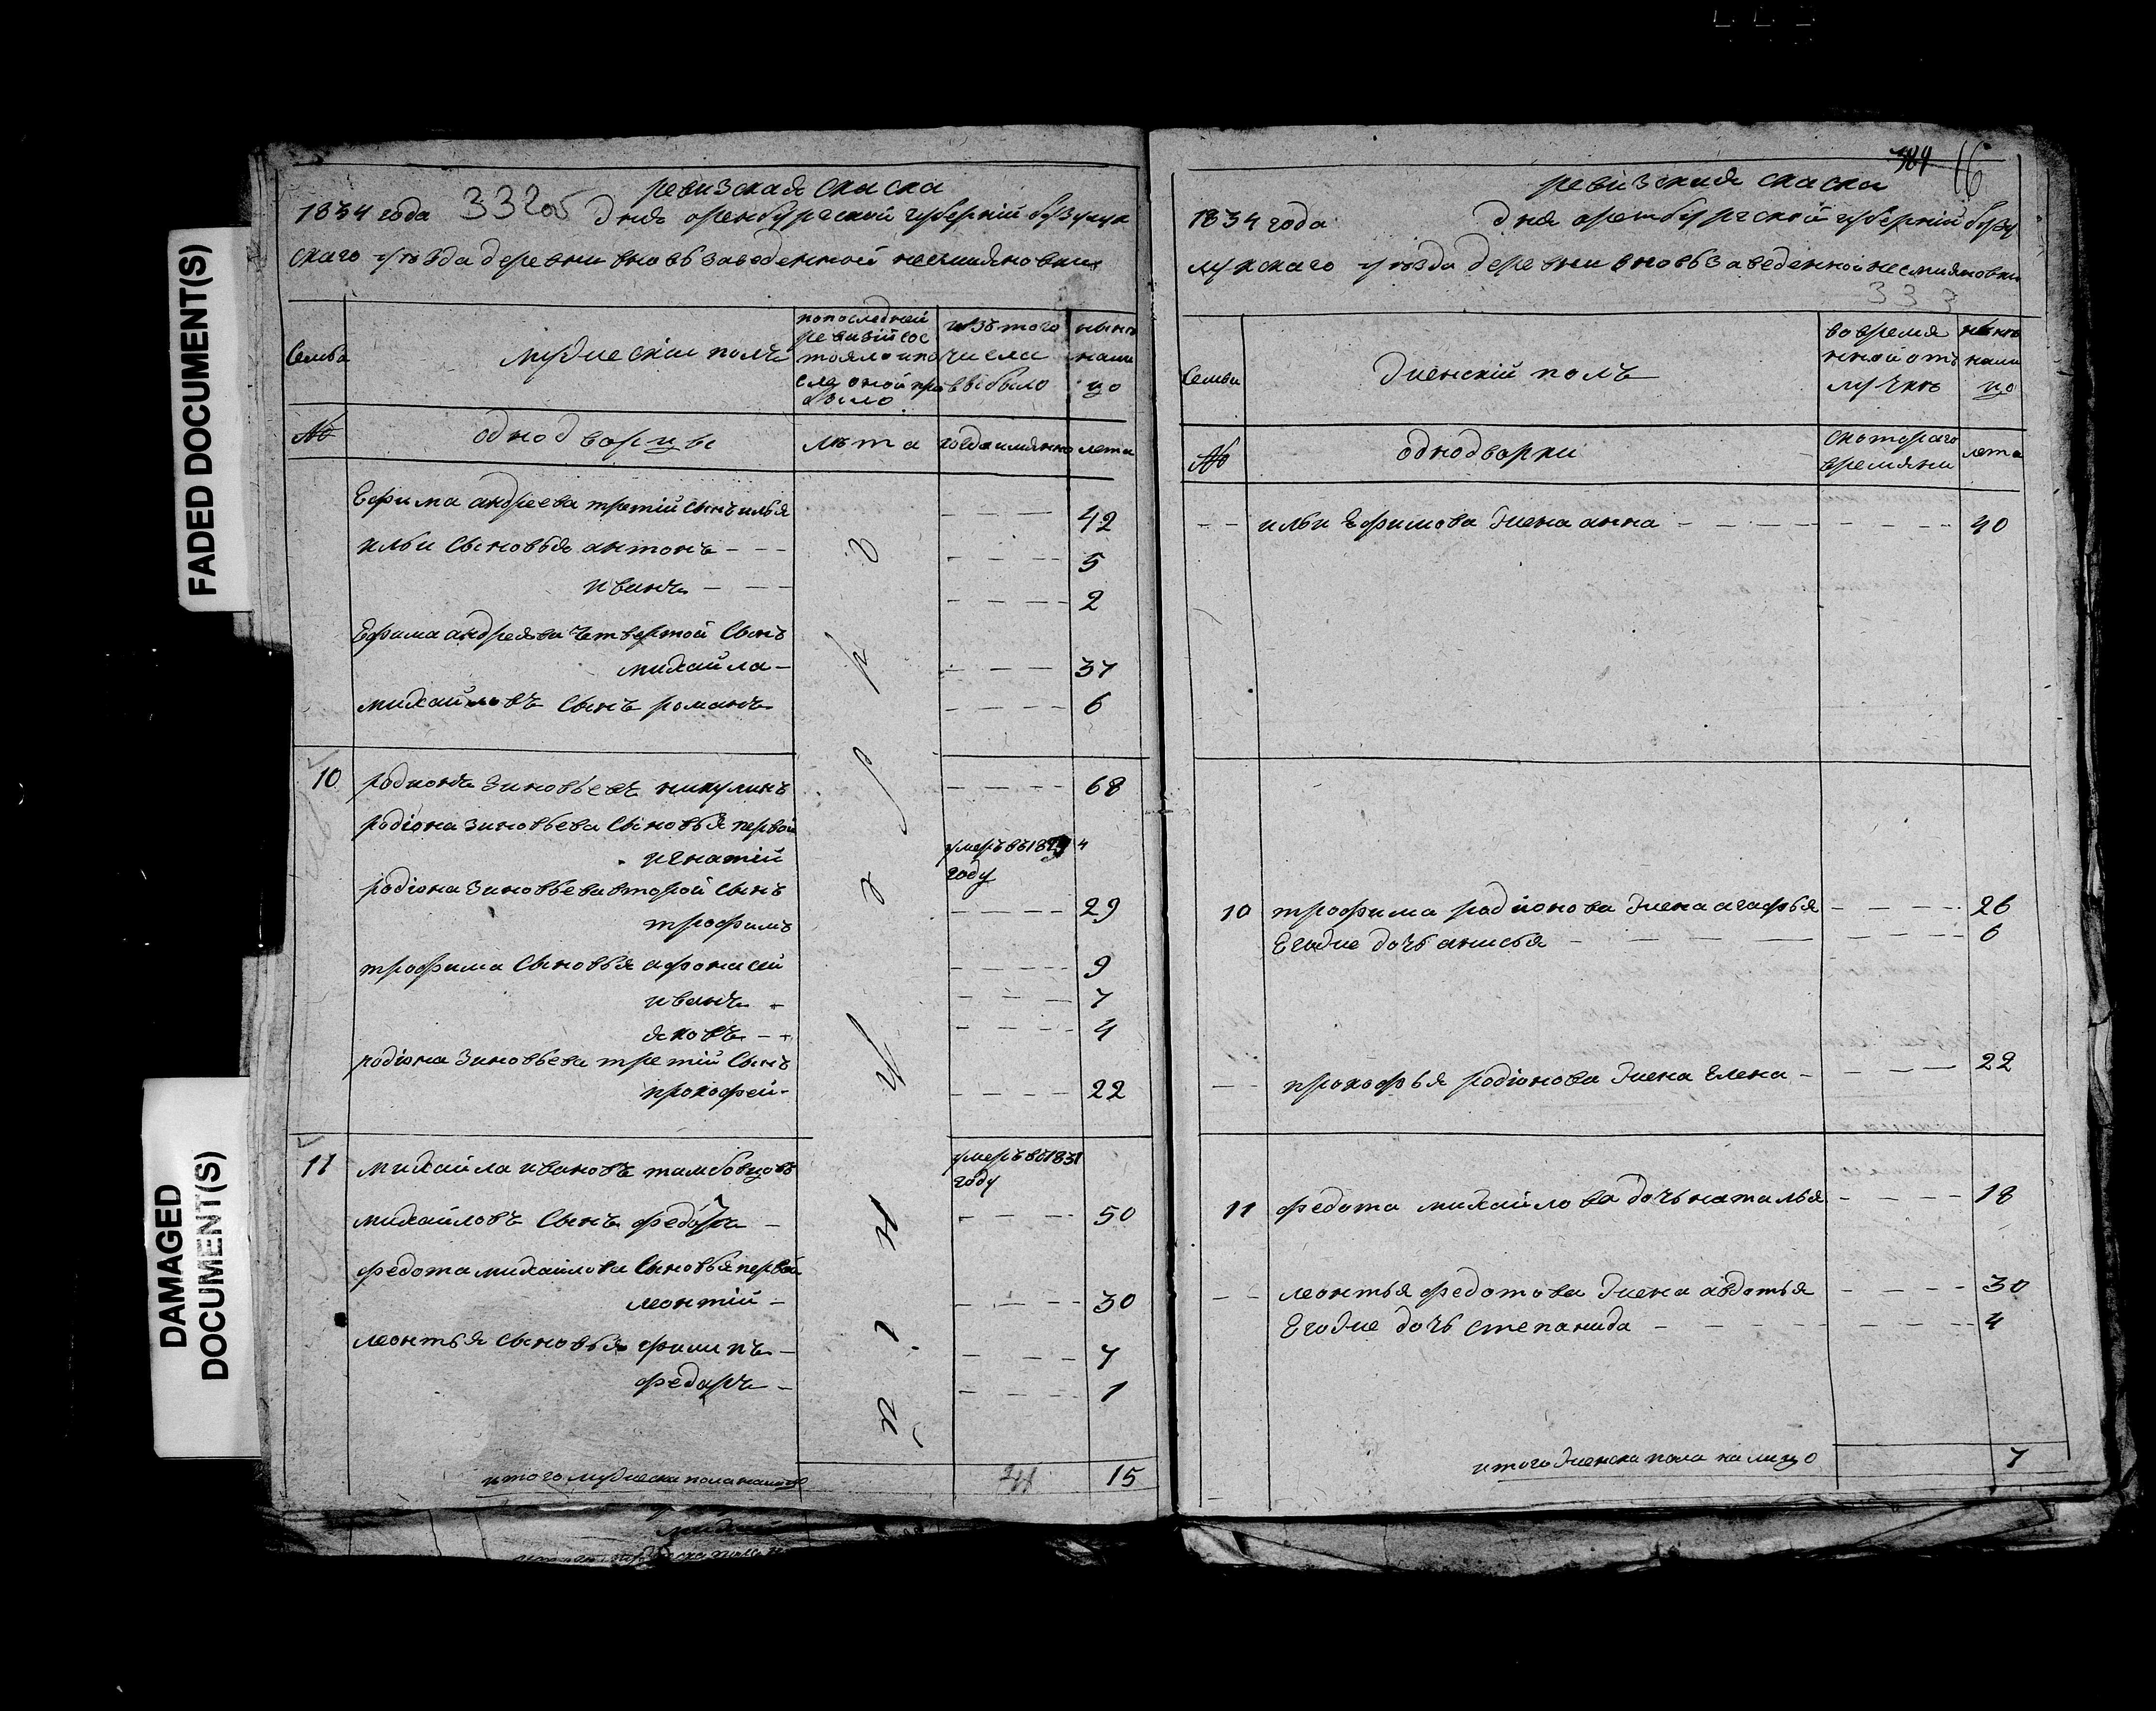 FADED DOCUMENT(S)
DAMAGED
DOCUMENT(S)
ревизская скаска
1834 года 332об дня оренбургской губернiй бузулук
скаго уѣзда деревни вновь заведенной несмияновки
Семьи
мужескiи полъ
попоследней
ревизiй сос
тояло и по
сле оной при
было
изъ того
числа
выбыло
нынѣ
нали
цо
№
однодворцы
лѣта
лета
Ефима андреева третiй сынъ илья 42
ильи сыновья антонъ 5
иванъ 2
Ефима андреява четвертой сынъ
михайла 37
михайловъ сынъ романъ 6
10 родионъ зиновьевъ никулинъ 68
родiона зиновьева сыновья первой
игнатiй умеръ въ 1824
году
родiона зиновьева второй сынъ
трофимъ 29
трофима сыновья афонасей 9
иванъ 7
яковъ 4
родiона зиновьева третiй сынъ
прокофей 22
11 михайла ивановъ тамбовцовъ умеръ въ 1831
году
михайловъ сынъ федотъ 50
федота михайлова сыновья первой
леонтiй 30
леонтья сыновья филипъ 7
федаръ 1
итого мужеска пола налицо 15
384 16
ревизская скаска
1834 года дня оренбургской губернiй бузу
лукскаго уѣзда деревни вновь заведенной несмияновки
333
Семьи
женскiй полъ
вовремя
нной отъ
лучкѣ
нынѣ
нали
цо
№
однодворки
скотораго
времяни
лета
ильи Ефимова жена анна 40
10 трофима родионова жена агафья 26
Егоже дочь анисья 6
прокофья родiонова жена Елена 22
11 федота михайлова дочь наталья 18
леонтья федотова жена авдотья 30
Егоже дочь степанида 4
итого женска пола налицо 7